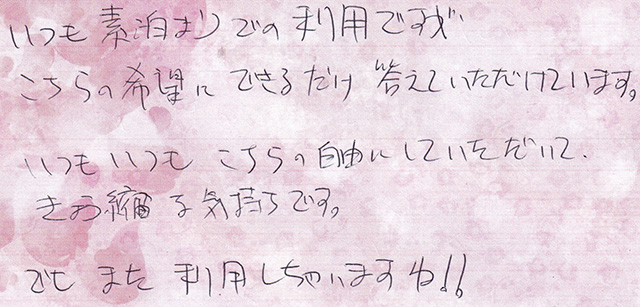 いつも 素泊まりでの利用ですが
こちらの希望に できるだけ 答えていただけています。
いつも いつも こちらの自由にしていただいて、
きょう縮する気持ちです。
でも また 利用しちゃいますね!!